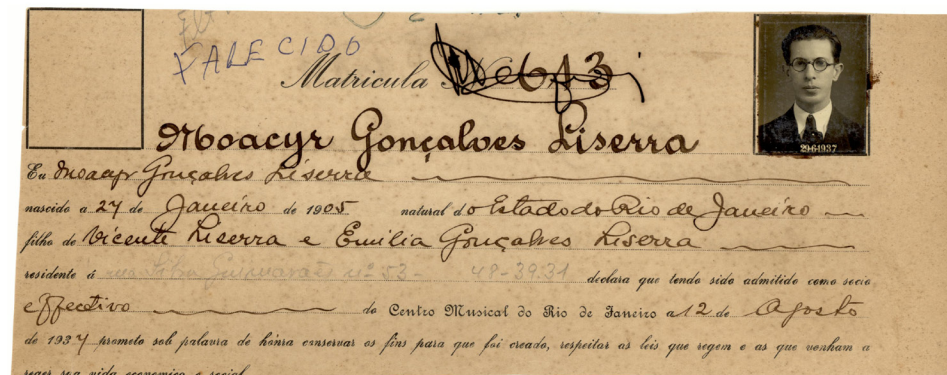 FALECIDO
Matricula Nº 613
29·6·1937
Moacyr Gonçalves Liserra
Eu Moacyr Gonçalves Liserra
nascido a 27 de Janeiro de 1905 natural do Estado do Rio de Janeiro
filho de Vicente Liserra e Emilia Gonçalves Liserra
residente á rua Silva Guimarães nº 53 - 48-3931 declara que tendo sido admitido como socio
effectivo do Centro Musical do Rio de Janeiro a 12 de Agosto
de 1937 prometo sob palavra de hônra conservar os fins para que foi creado, respeitar as leis que regem e as que venham a
reger sua vida economica e social